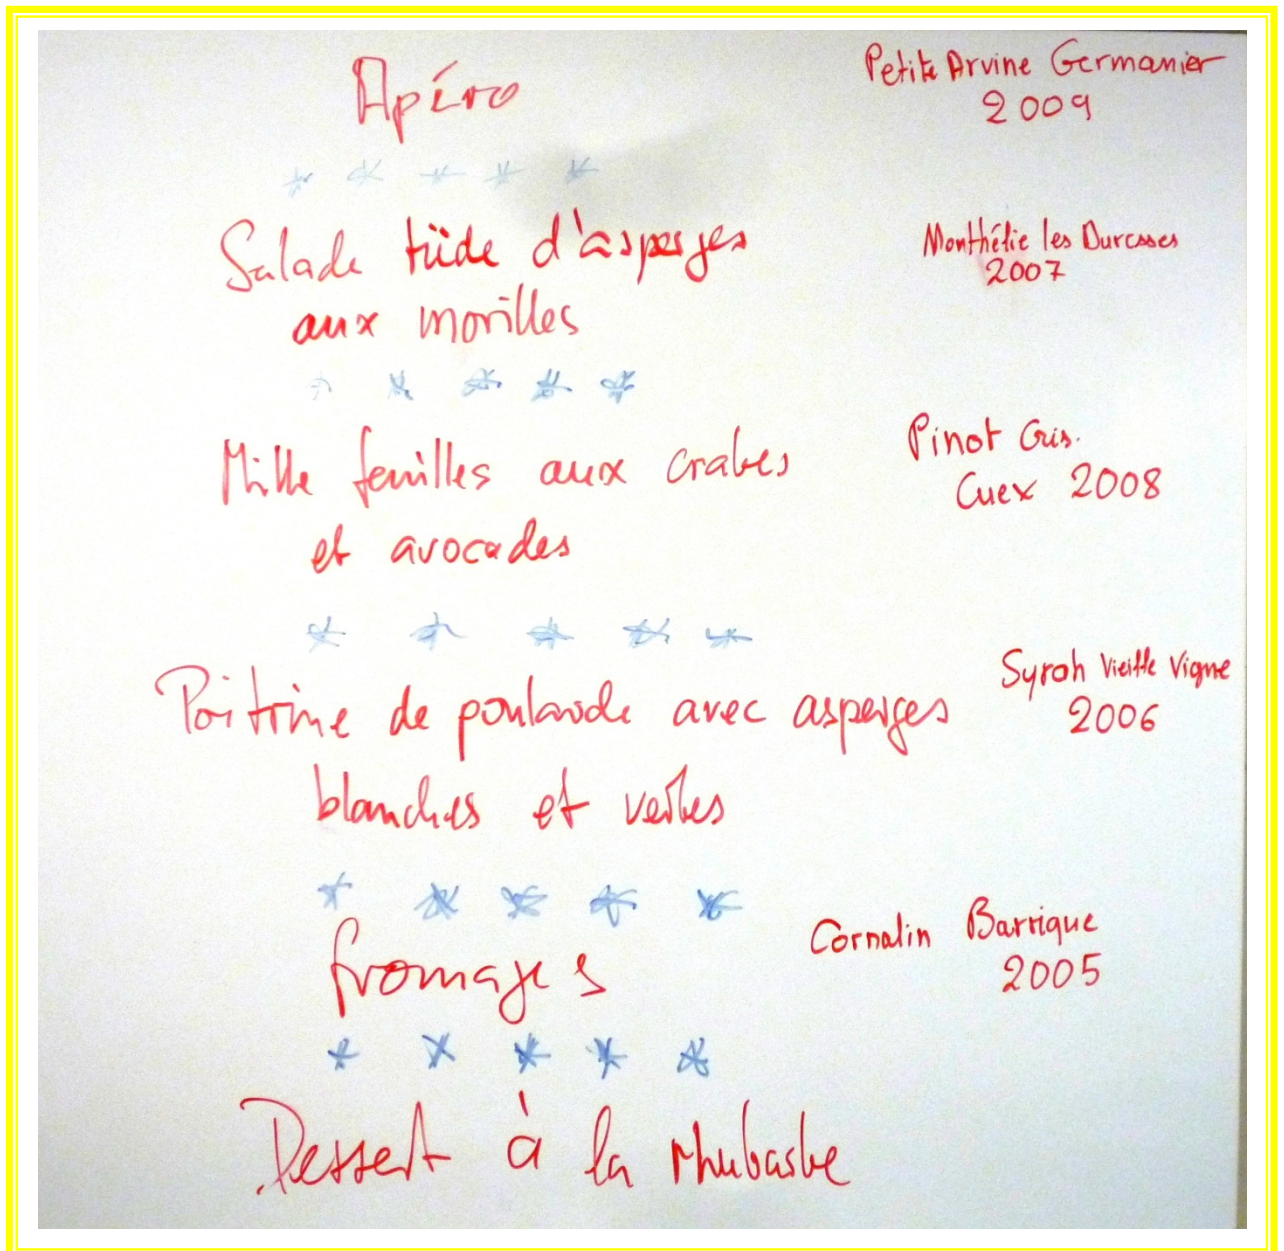 Apéro
Petite Arvine Germanier
2009
* * * * *
Salade tiède d'asperges
aux morilles
Monthélie les Duresses
2007
* * * * *
Mille feuilles aux crabes
et avocades
Pinot Gris.
Cuex 2008
* * * * *
Poitrine de poularde avec asperges
blanches et vertes
Syrah Vieille Vigne
2006
* * * * *
fromages
Cornalin Barrique
2005
* * * * *
Dessert à la rhubarbe